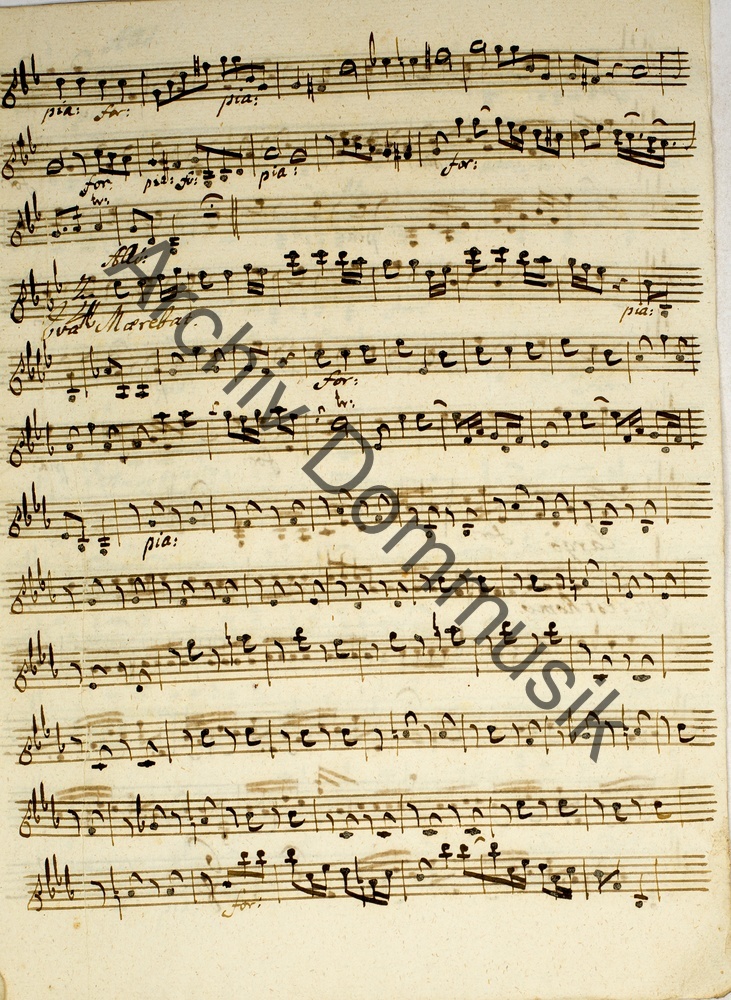 pia: for: pia:
for: pia: fo: pia: for:
tr:
All:
Mærebat. pia:
for:
tr:
pia:
for:
Archiv Dommusik